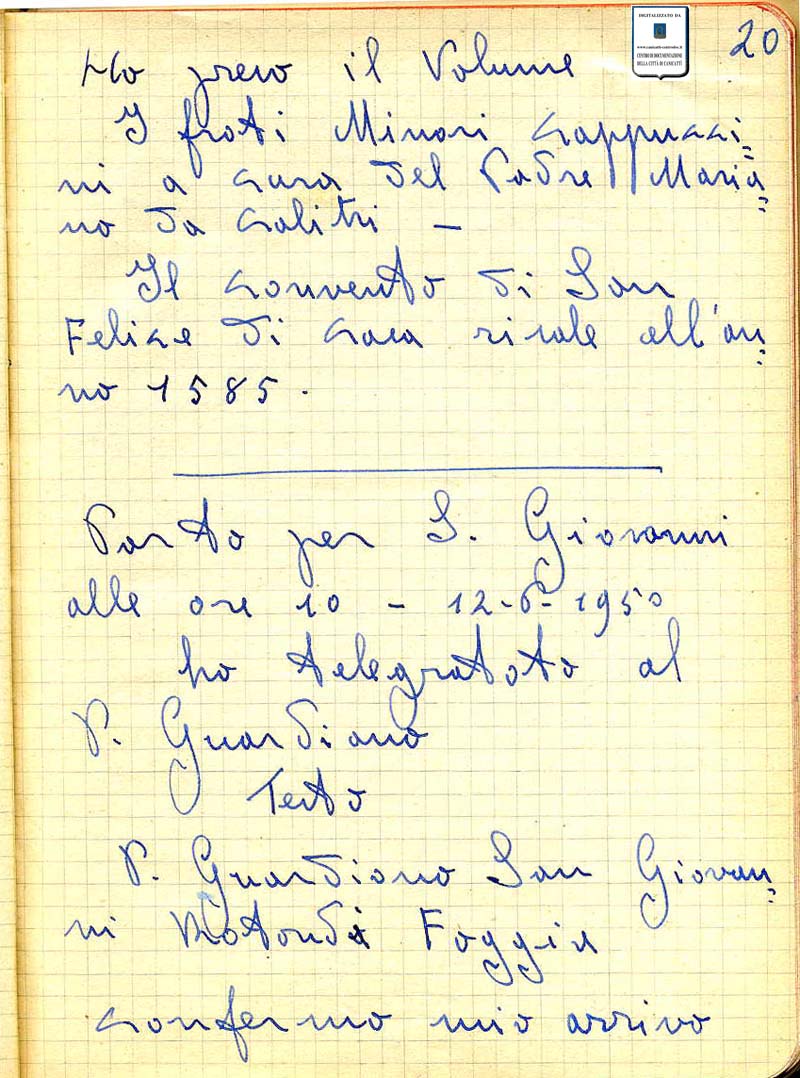 DIGITALIZZATO DA
www.canicatti-centrodoc.it
CENTRO DI DOCUMENTAZIONE
DELLA CITTÀ DI CANICATTÌ
20
Ho preso il Volume
I frati Minori Cappucci=
ni a cura del Padre Maria=
no da Calitri –
Il convento di San
Felice di Cava risale all'an=
no 1585.
Parto per S. Giovanni
alle ore 10 – 12-6-1950
ho telegrafato al
P. Guardiano
Testo
P. Guardiano San Giovan=
ni Rotondo Foggia
Confermo mio arrivo